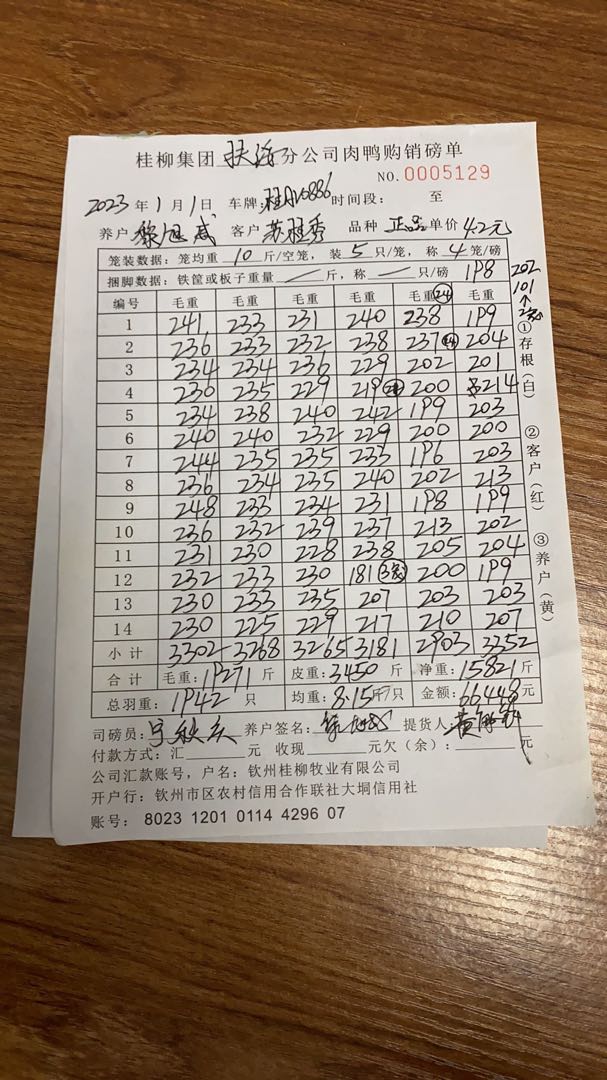 桂柳集团 分公司肉鸭购销磅单
NO.0005129
2023年1月1日 车牌: 时间段: 至
养户 客户 苏桂秀 品种 正品 单价 4.2元
笼装数据:笼均重 10 斤/空笼,装 5 只/笼,称 4 笼/磅
捆脚数据:铁筐或板子重量 / 斤,称 / 只/磅 198 202
101
编号 毛重 毛重 毛重 毛重 毛重 毛重
1 241 233 231 240 238 199
2 236 233 232 238 237 204
3 234 234 236 229 202 201
4 230 235 229 219 200 214
5 234 238 240 242 199 203
6 240 240 232 229 200 200
7 244 235 235 233 196 203
8 236 234 235 240 202 213
9 248 233 234 231 198 199
10 236 232 239 237 213 202
11 231 230 228 238 205 204
12 232 233 230 181 200 199
13 230 233 235 207 203 203
14 230 225 229 217 210 207
小计 3302 3268 3265 3181 2903 3352
合计 毛重:19271斤 皮重:3450斤 净重:15821斤
总羽重:1942只 均重:8.15斤/只 金额:66448元
①存根(白) ②客户(红) ③养户(黄)
司磅员: 养户签名: 提货人:
付款方式:汇 元 收现 元欠(余): 元
公司汇款账号,户名:钦州桂柳牧业有限公司
开户行:钦州市区农村信用合作联社大垌信用社
账号:8023 1201 0114 4296 07